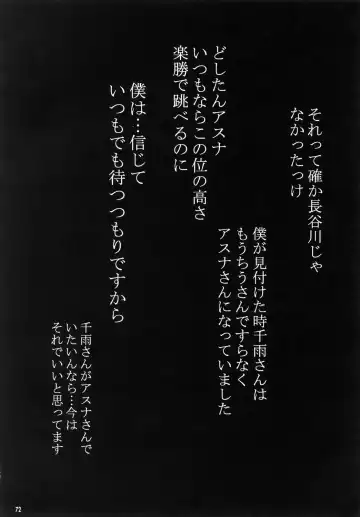 それって確か長谷川じゃ
なかったっけ
どしたんアスナ
いつもならこの位の高さ
楽勝で跳べるのに
僕が見付けた時千雨さんは
もうちうさんですらなく
アスナさんになっていました
僕は…信じて
いつもでも待つつもりですから
千雨さんがアスナさんで
いたいんなら…今は
それでいいと思ってます
72